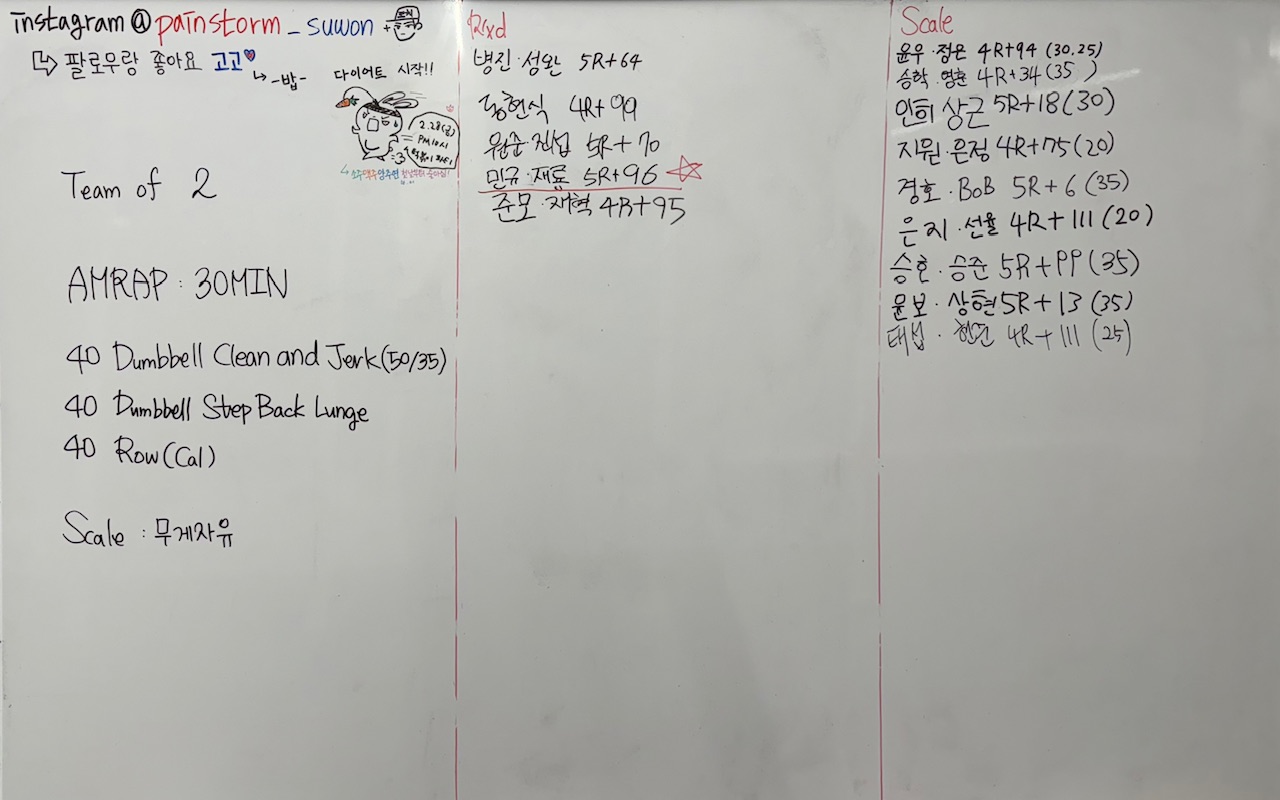 instagram@painstorm_suwon +
팔로우랑 좋아요 고고
-밥-
다이어트 시작!!
2.28(금)
PM10시
Team of 2
AMRAP : 30MIN
40 Dumbbell Clean and Jerk(50/35)
40 Dumbbell Step Back Lunge
40 Row(Cal)
Scale : 무게자유
Rxd
병진·성완 5R+64
현식 4R+99
원준·진섭 5R+70
민규·재료 5R+96
준모·재혁 4R+95
Scale
윤우·정은 4R+94 (30.25)
승학·영훈 4R+34(35)
인희 상근 5R+18(30)
지원·은정 4R+75(20)
경호·BoB 5R+6(35)
은지·선율 4R+111(20)
승호·승준 5R+PP(35)
윤보·상현 5R+13(35)
태섭· 4R+111(25)